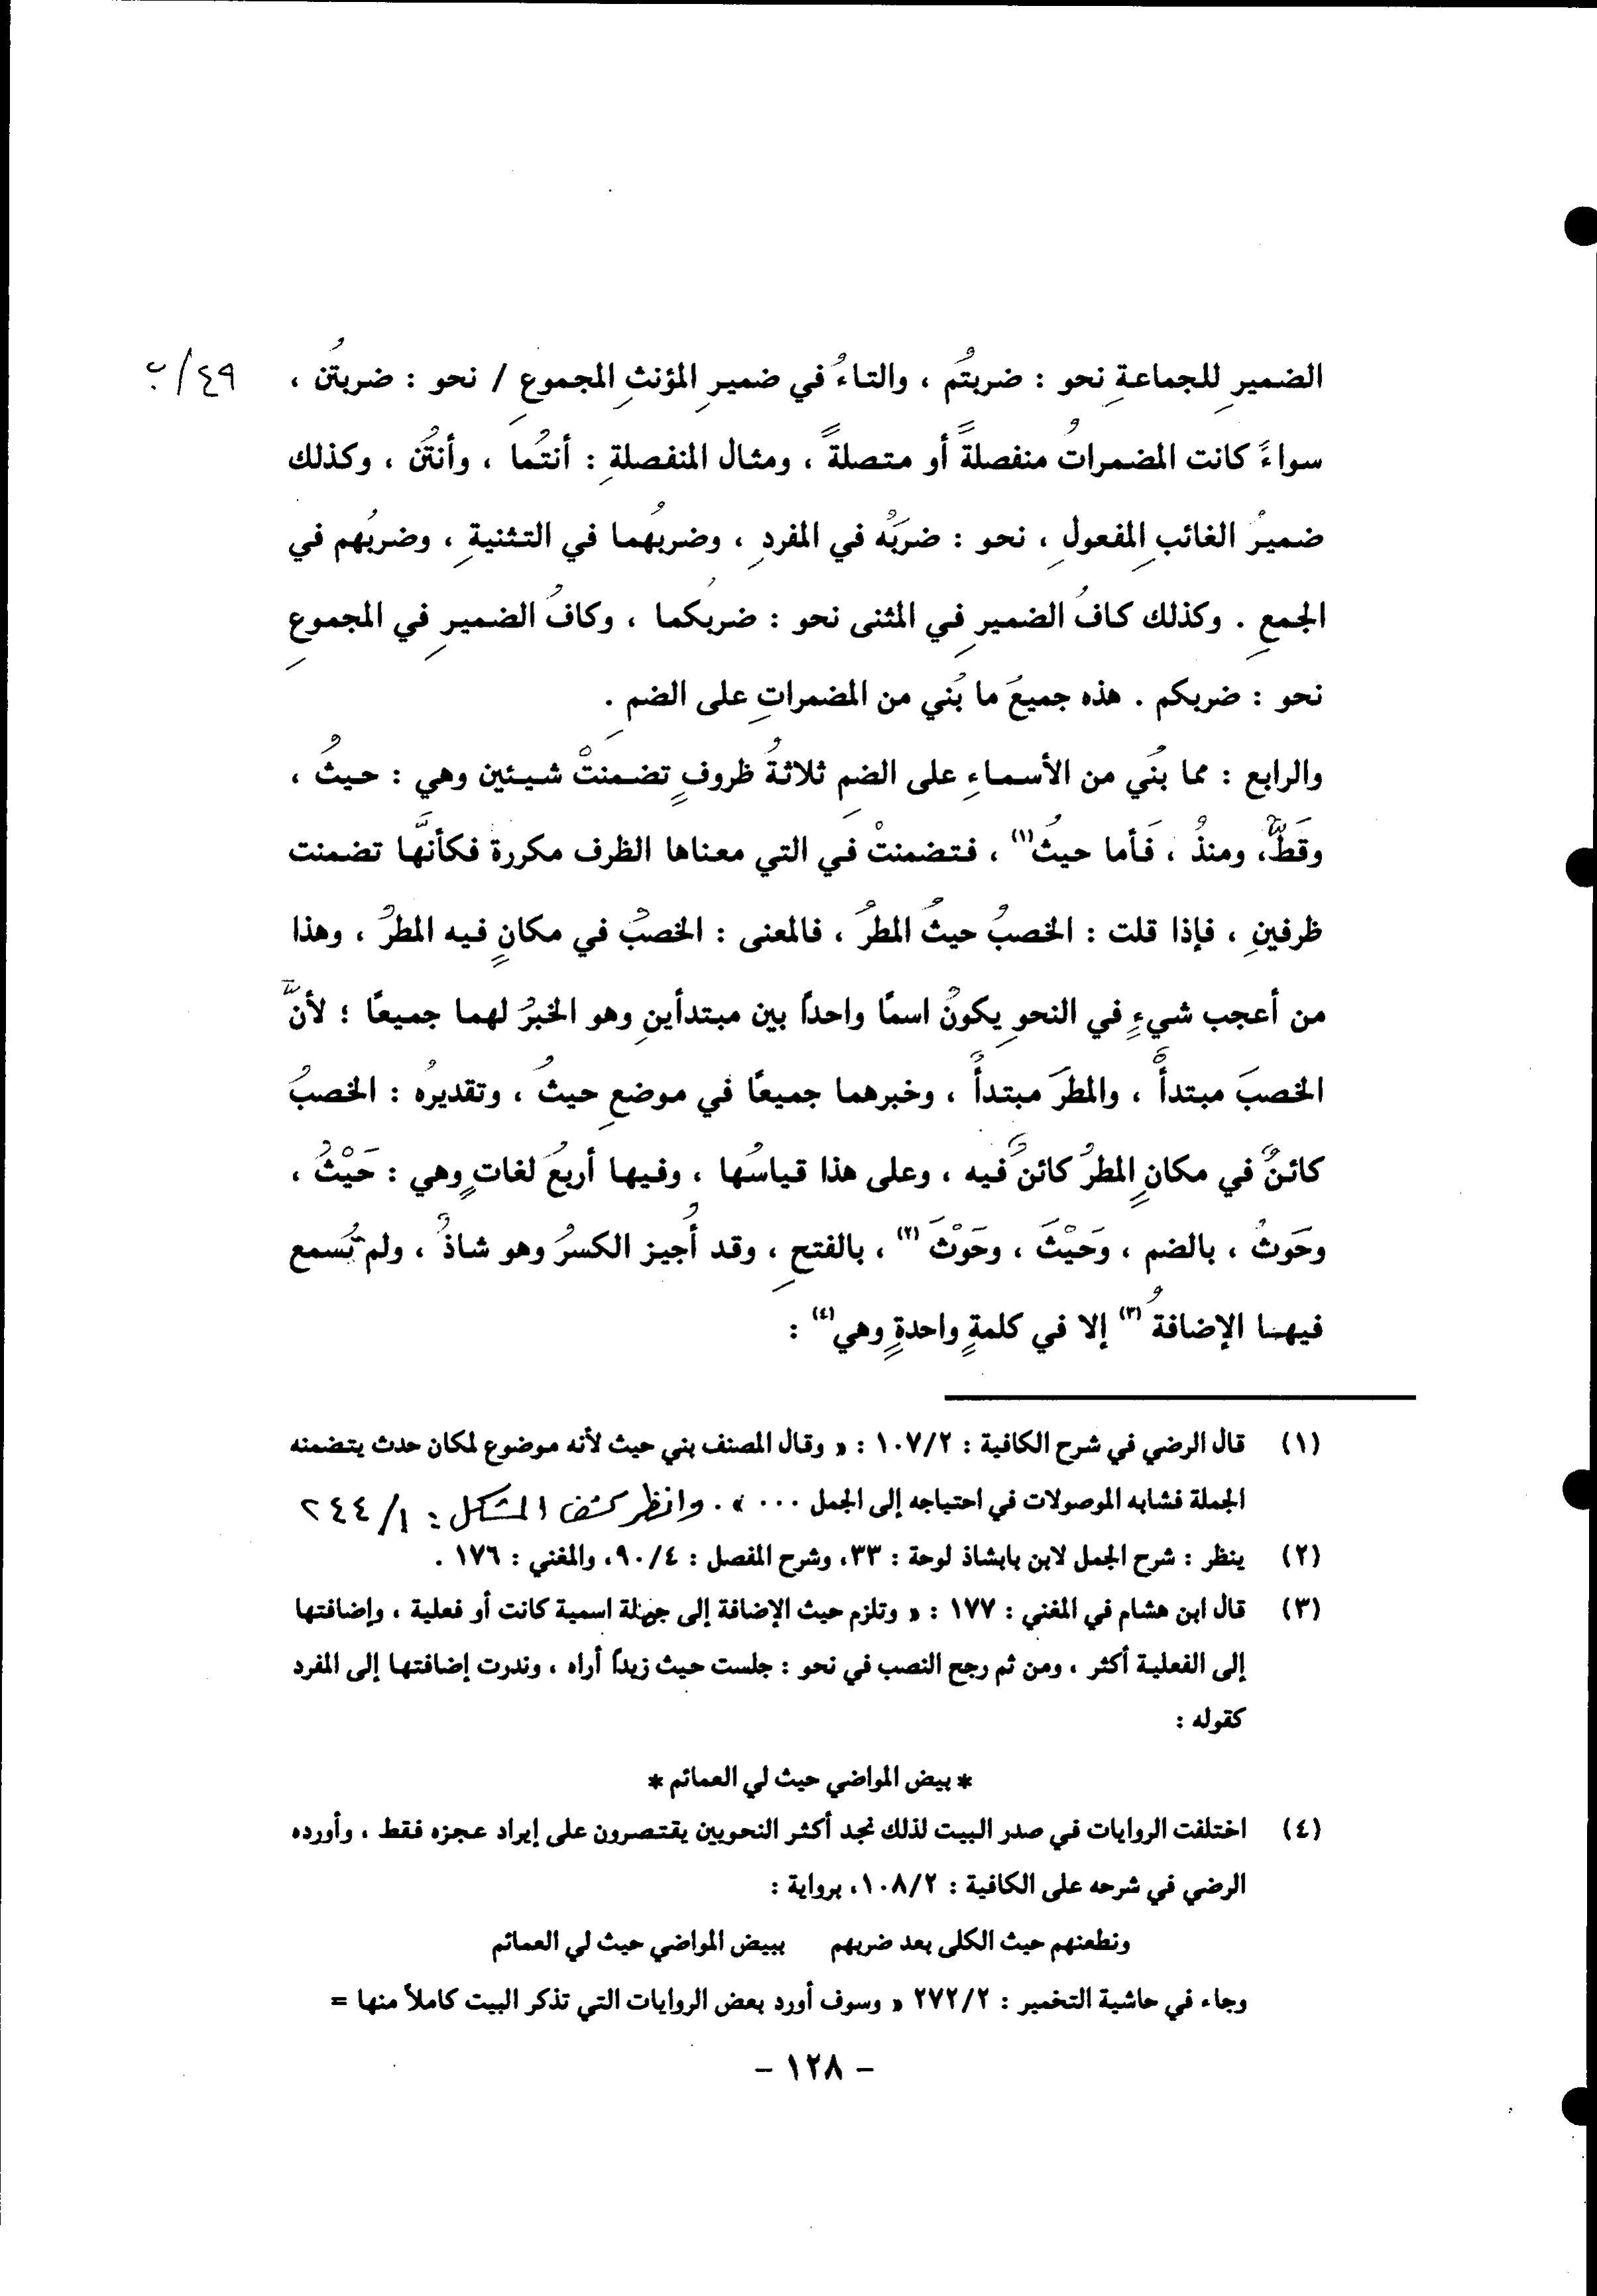 الضميرِ للجماعةِ نحو : ضربتُم ، والتاءُ في ضميرِ المؤنثِ المجموعِ / نحو : ضربتُن ، ٤٩/ب
سواءً كانت المضمراتُ منفصلةً أو متصلةً ، ومثال المنفصلةِ : أنتُما ، وأنتُن ، وكذلك
ضميرُ الغائبِ المفعولِ ، نحو : ضربَهُ في المفردِ ، وضربهُما في التثنيةِ ، وضربهُم في
الجمعِ . وكذلك كافُ الضميرِ في المثنى نحو : ضربكُما ، وكافُ الضميرِ في المجموعِ
نحو : ضربكم . هذه جميعُ ما بُني من المضمراتِ على الضمِ .
والرابع : مما بُني من الأسماءِ على الضمِ ثلاثةُ ظروفٍ تضمنتْ شيئين وهي : حيثُ ،
وقَطُّ، ومنذُ ، فَأما حيثُ(١) ، فتضمنتْ في التي معناها الظرف مكررة فكأنَّها تضمنت
ظرفينِ ، فإذا قلت : الخصبُ حيثُ المطرُ ، فالمعنى : الخصبُ في مكانٍ فيه المطرُ ، وهذا
من أعجب شيءٍ في النحوِ يكونُ اسمًا واحدًا بين مبتدأينِ وهو الخبرُ لهما جميعًا ؛ لأنَّ
الخصبَ مبتدأٌ ، والمطرَ مبتدأٌ ، وخبرهما جميعًا في موضعِ حيثُ ، وتقديرُه : الخصبُ
كائنٌ في مكانٍ المطرُ كائنٌ فيه ، وعلى هذا قياسُها ، وفيها أربعُ لغاتٍ وهي : حَيْثُ ،
وحَوثُ ، بالضم ، وَحَيْثَ ، وحَوْثَ (٢) ، بالفتحِ ، وقد أُجيز الكسرُ وهو شاذٌ ، ولم تُسمع
فيها الإضافةُ (٣) إلا في كلمةٍ واحدةٍ وهي(٤) :
(١) قال الرضي في شرح الكافية : ١٠٧/٢ : « وقال المصنف بني حيث لأنه موضوع لمكان حدث يتضمنه
الجملة فشابه الموصولات في احتياجه إلى الجمل ... » . وانظر كشف المشكل : ٢٤٤/١
(٢) ينظر : شرح الجمل لابن بابشاذ لوحة : ٣٣، وشرح المفصل : ٩٠/٤، والمغني : ١٧٦ .
(٣) قال ابن هشام في المغني : ١٧٧ : « وتلزم حيث الإضافة إلى جملة اسمية كانت أو فعلية ، وإضافتها
إلى الفعلية أكثر ، ومن ثم رجح النصب في نحو : جلست حيث زيداً أراه ، وندرت إضافتها إلى المفرد
كقوله :
* بيض المواضي حيث لي العمائم *
(٤) اختلفت الروايات في صدر البيت لذلك نجد أكثر النحويين يقتصرون على إيراد عجزه فقط ، وأورده
الرضي في شرحه على الكافية : ١٠٨/٢، برواية :
ونطعنهم حيث الكلى بعد ضربهم ببيض المواضي حيث لي العمائم
وجاء في حاشية التخمير : ٢٧٢/٢ « وسوف أورد بعض الروايات التي تذكر البيت كاملاً منها =
- ١٢٨ -